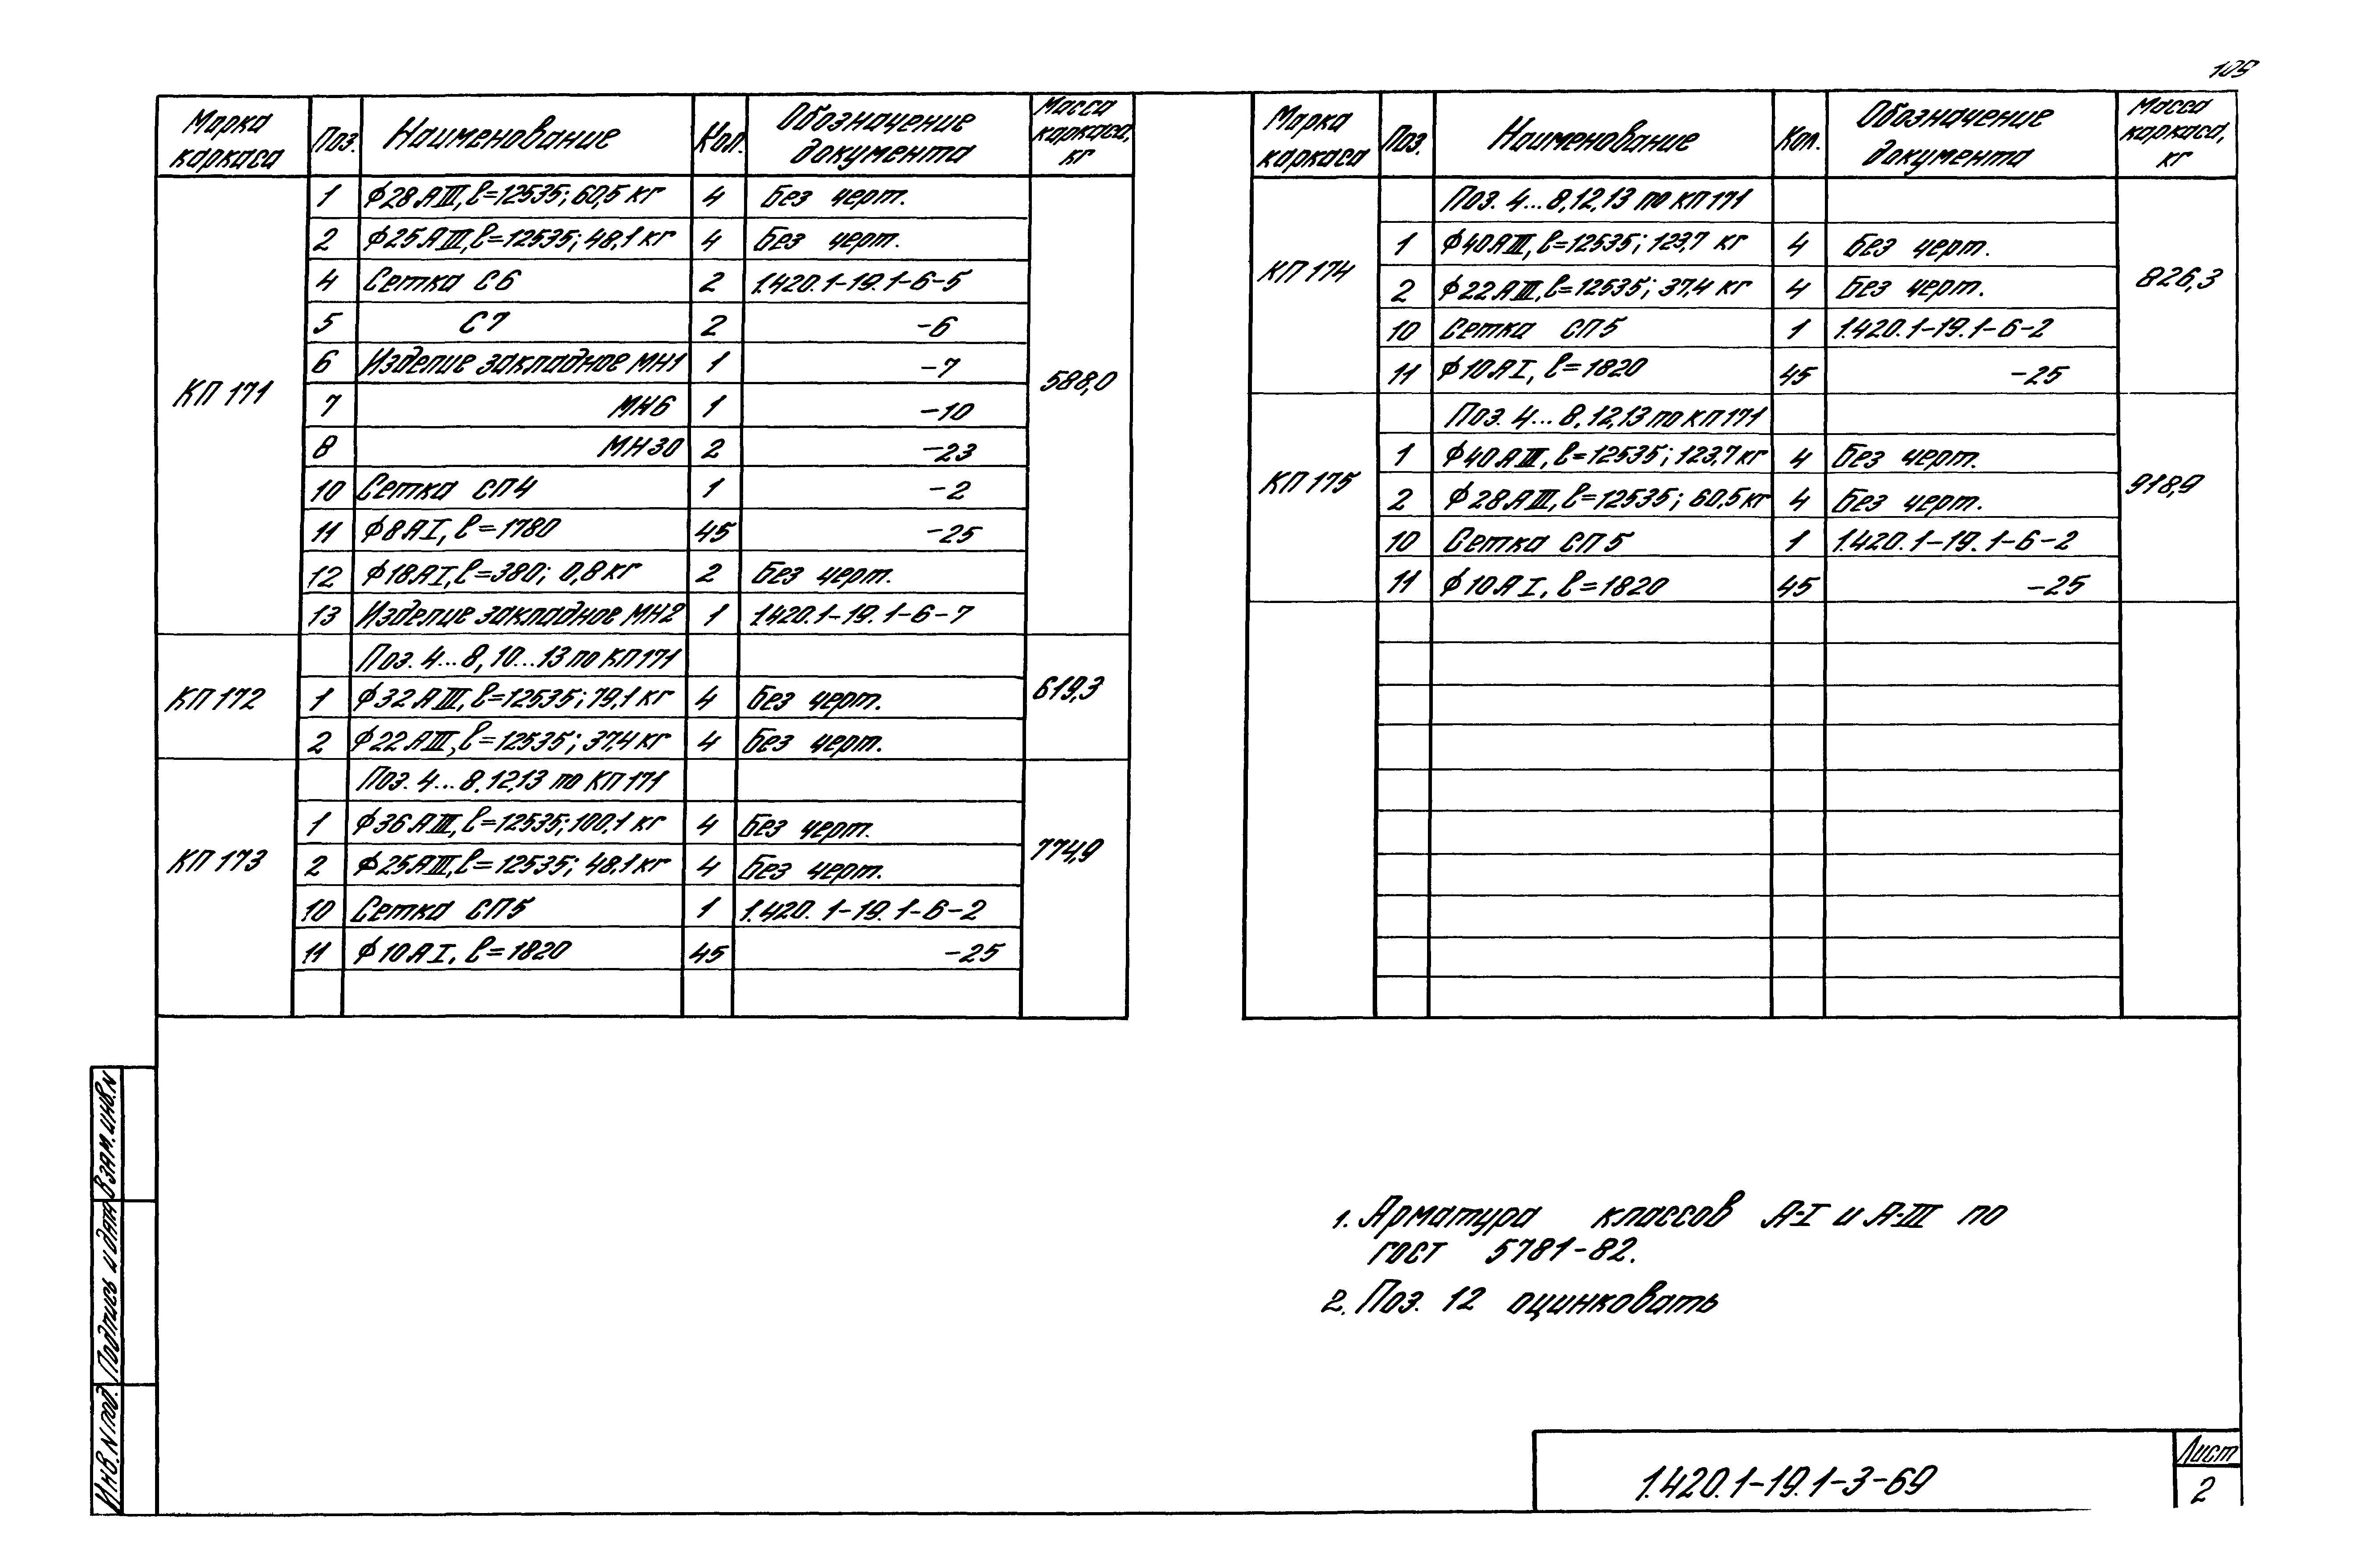 109
Марка каркаса | Поз. | Наименование | Кол. | Обозначение документа | Масса каркаса, кг
КП 171 | 1 | ϕ28АIII, ℓ=12535; 60,5 кг | 4 | Без черт. | 588,0
2 | ϕ25АIII, ℓ=12535; 48,1 кг | 4 | Без черт.
4 | Сетка С6 | 2 | 1.420.1-19.1-6-5
5 | С7 | 2 | -6
6 | Изделие закладное МН1 | 1 | -7
7 | МН6 | 1 | -10
8 | МН30 | 2 | -23
10 | Сетка СП4 | 1 | -2
11 | ϕ8АI, ℓ=1780 | 45 | -25
12 | ϕ18АI, ℓ=380; 0,8 кг | 2 | Без черт.
13 | Изделие закладное МН2 | 1 | 1.420.1-19.1-6-7
КП 172 | Поз. 4...8, 10...13 по КП171 | 619,3
1 | ϕ32АIII, ℓ=12535; 79,1 кг | 4 | Без черт.
2 | ϕ22АIII, ℓ=12535; 37,4 кг | 4 | Без черт.
КП 173 | Поз. 4...8, 12,13 по КП171 | 774,9
1 | ϕ36АIII, ℓ=12535; 100,1 кг | 4 | Без черт.
2 | ϕ25АIII, ℓ=12535; 48,1 кг | 4 | Без черт.
10 | Сетка СП5 | 1 | 1.420.1-19.1-6-2
11 | ϕ10АI, ℓ=1820 | 45 | -25
Марка каркаса | Поз. | Наименование | Кол. | Обозначение документа | Масса каркаса, кг
КП 174 | Поз. 4...8, 12, 13 по КП171 | 826,3
1 | ϕ40АIII, ℓ=12535; 123,7 кг | 4 | Без черт.
2 | ϕ22АIII, ℓ=12535; 37,4 кг | 4 | Без черт.
10 | Сетка СП5 | 1 | 1.420.1-19.1-6-2
11 | ϕ10АI, ℓ=1820 | 45 | -25
КП 175 | Поз. 4...8, 12,13 по КП171 | 918,9
1 | ϕ40АIII, ℓ=12535; 123,7 кг | 4 | Без черт.
2 | ϕ28АIII, ℓ=12535; 60,5 кг | 4 | Без черт.
10 | Сетка СП5 | 1 | 1.420.1-19.1-6-2
11 | ϕ10АI, ℓ=1820 | 45 | -25
1. Арматура классов А-I и А-III по
ГОСТ 5781-82.
2. Поз. 12 оцинковать
Взам. инв. N
Подпись и дата
Инв. N под.
1.420.1-19.1-3-69
Лист
2